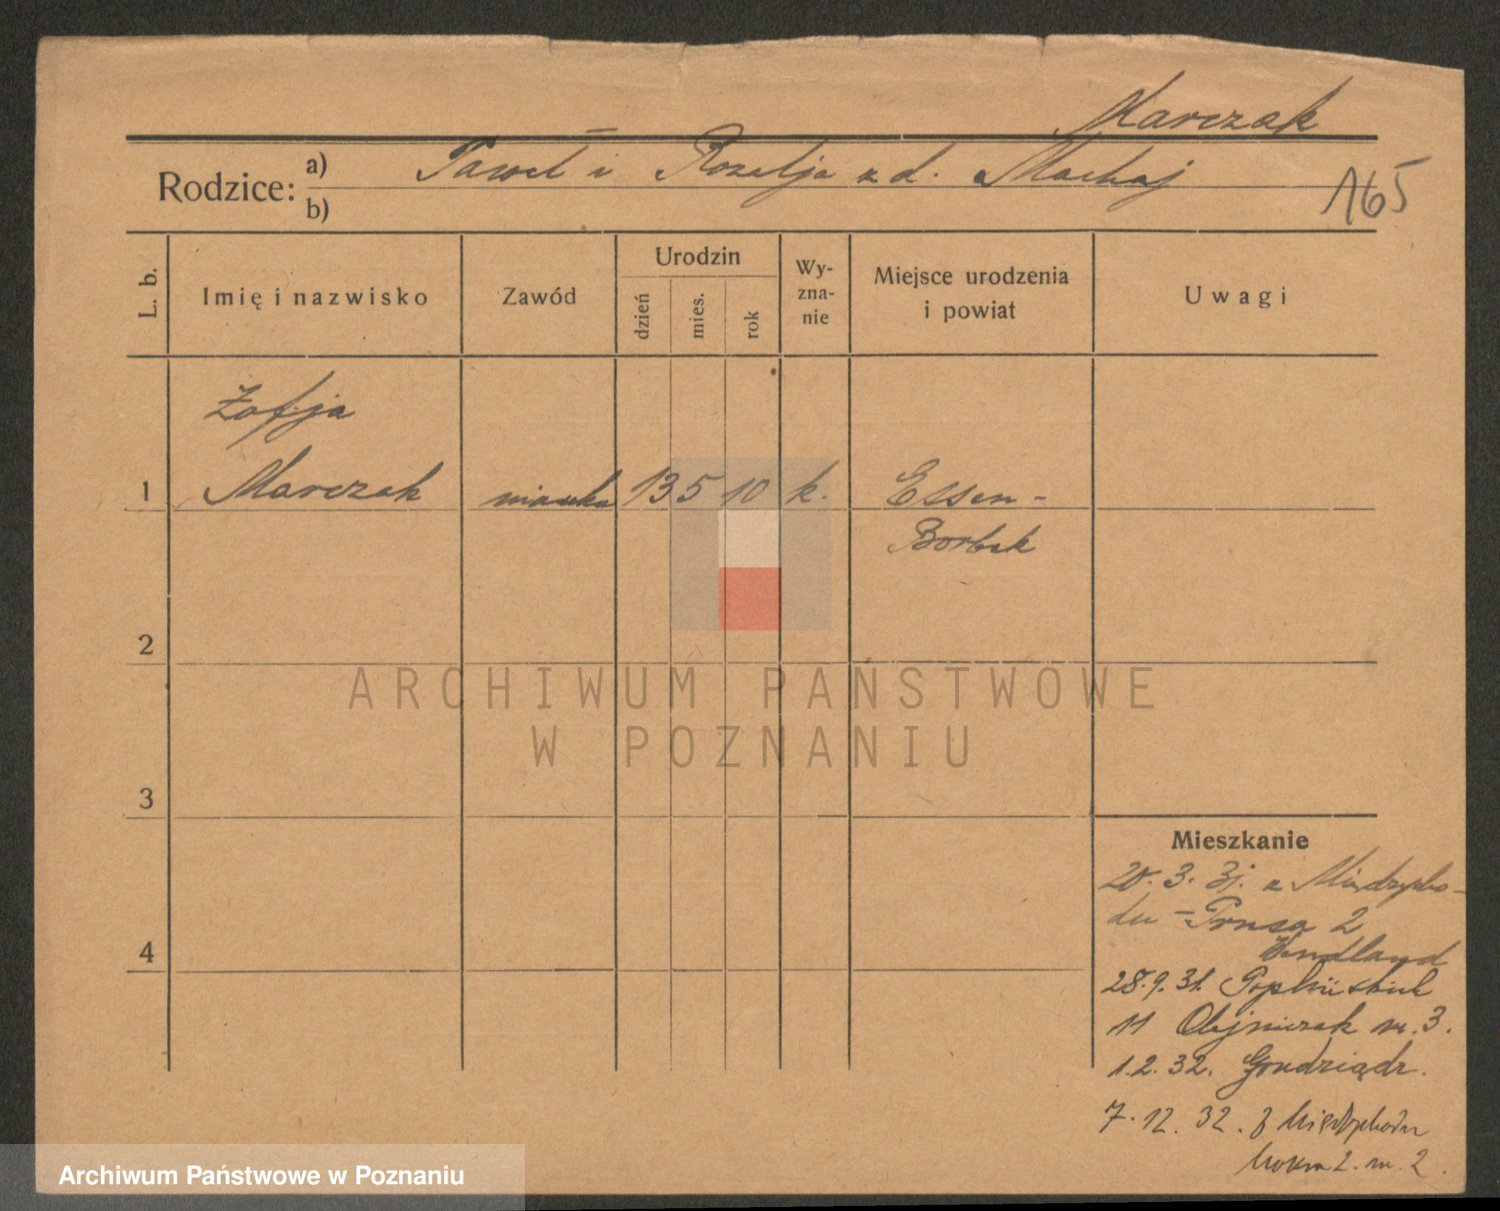 Marczak
Rodzice: a) Paweł i Rozalja z d. Machaj
b)
165
L. b.
Imię i nazwisko
Zawód
Urodzin
dzień
mies.
rok
Wy-
zna-
nie
Miejsce urodzenia
i powiat
Uwagi
Zofja
1 Marczak 13 5 10 k. Essen-
Borbek
2
3
4
Mieszkanie
20. 3. 31. z Międzycho-
du - Prusa 2
Wendland
28.9.31.
11 Olejniczak m. 3.
1.2.32. Grudziądz.
7. 12. 32. z Międzychodu
2. m. 2.
ARCHIWUM PAŃSTWOWE
W POZNANIU
Archiwum Państwowe w Poznaniu